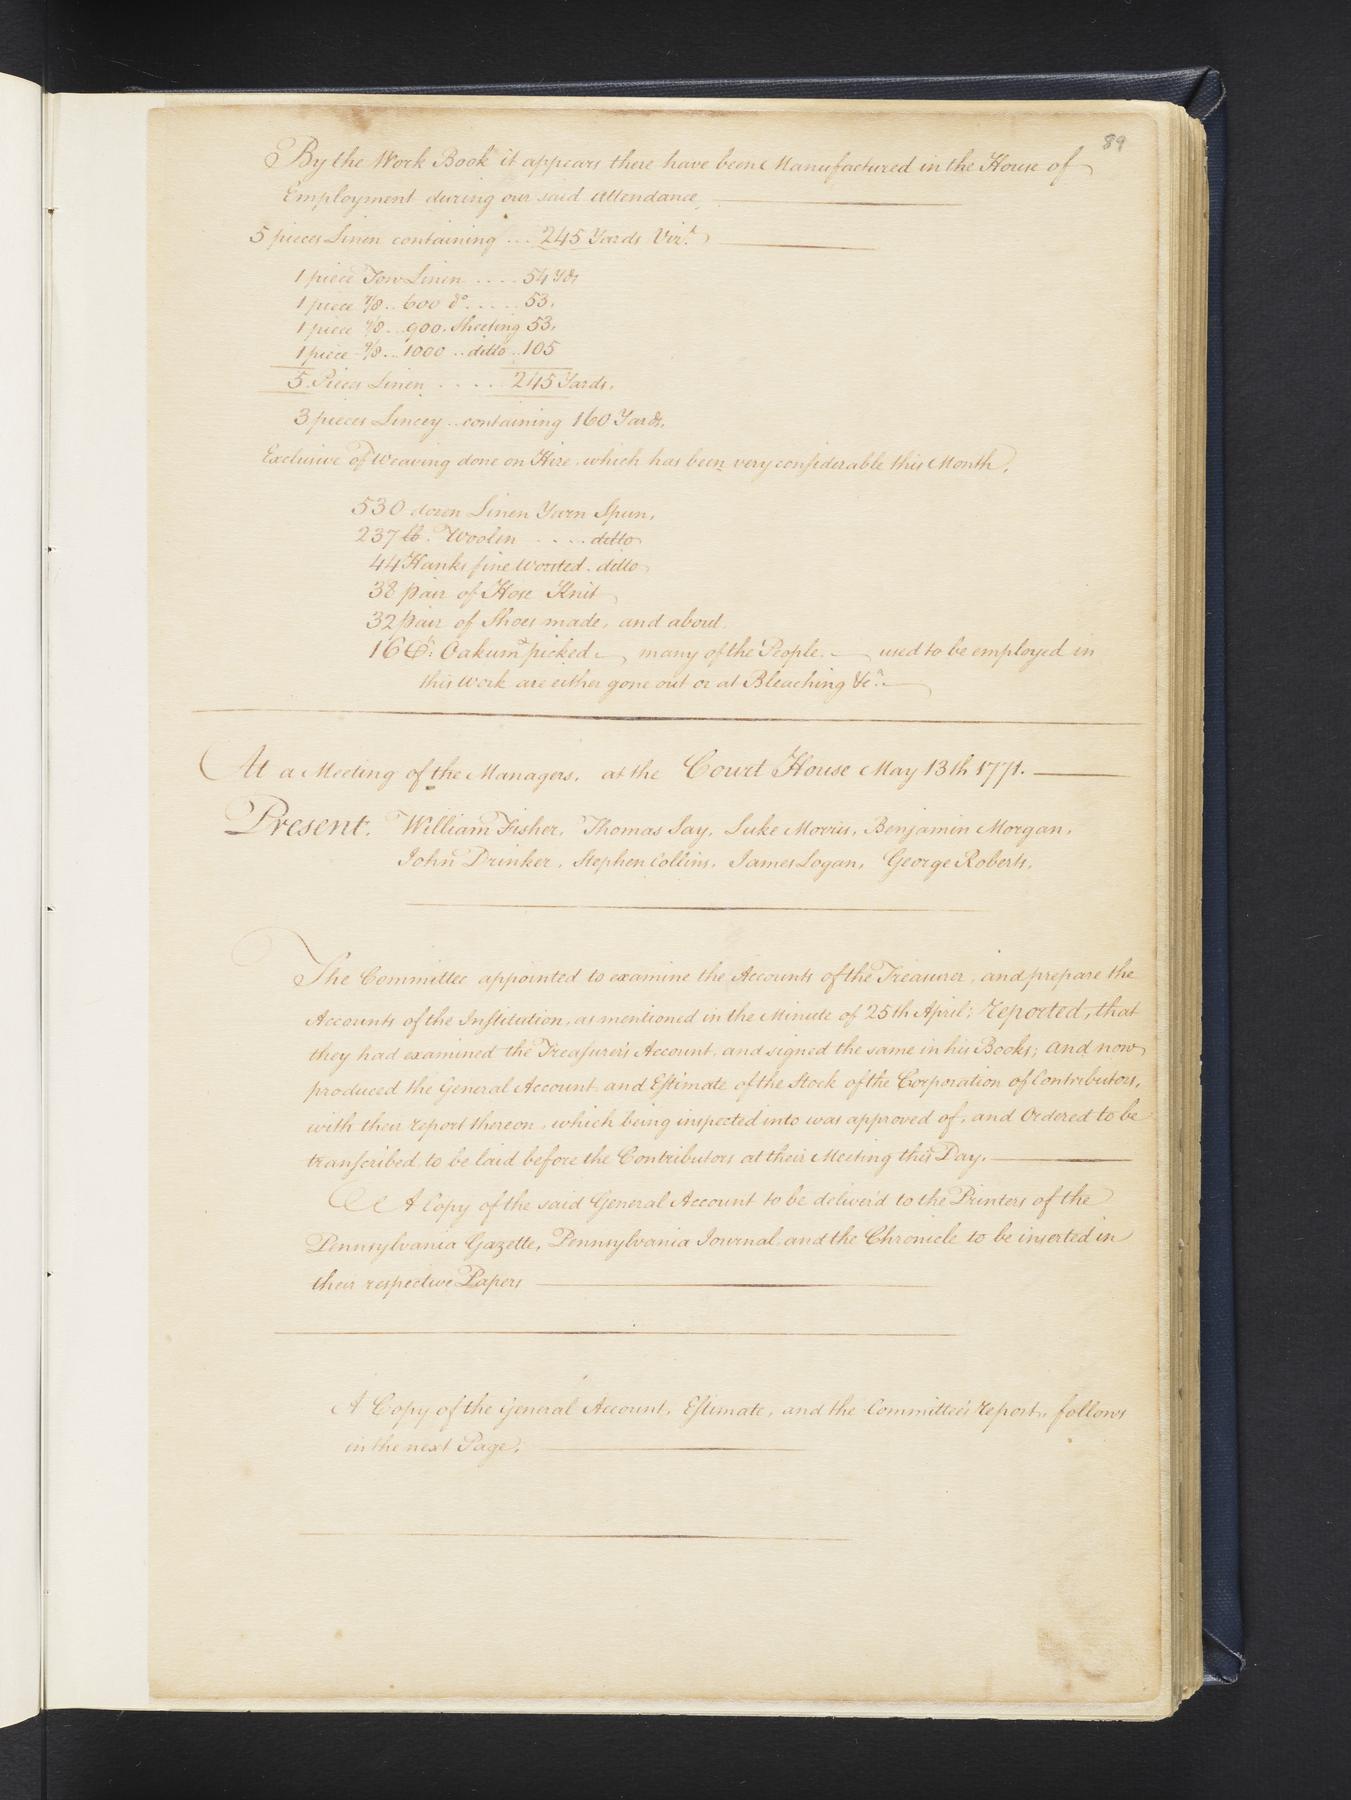 89
By the Work Book it appears there have been Manufactured in the House of
Employment during our said attendance,
5 pieces Linen containing ... 245 Yards Vizt.
1 piece Tow Linen .... 54 Yds
1 piece 7/8 .. 600 do ..... 53.
1 piece 7/8 .. 900. Sheeting 53.
1 piece 9/8 .. 1000 .. ditto .. 105
5. Pieces Linen .... 245 Yards.
3 pieces Lincey .. containing 160 Yards.
Exclusive of Weaving done on Hire, which has been very considerable this Month.
530 dozen Linen Yarn Spun,
237 lb. Woolen .... ditto
44 Hanks fine Worsted . ditto
38 pair of Hose Knit
32 pair of Shoes made, and about
16 C: Oakum picked many of the People used to be employed in
this Work are either gone out or at Bleaching &c.
At a Meeting of the Managers, at the Court House May 13th 1771.
Present. William Fisher, Thomas Say, Luke Morris, Benjamin Morgan,
John Drinker, Stephen Collins, James Logan, George Roberts.
The Committee appointed to examine the Accounts of the Treasurer, and prepare the
Accounts of the Institution, as mentioned in the Minute of 25th April; reported, that
they had examined the Treasurer's Account, and signed the same in his Books; and now
produced the General Account and Estimate of the Stock of the Corporation of Contributors,
with their report thereon, which being inspected into was approved of, and Ordered to be
transcribed, to be laid before the Contributors at their Meeting this Day.
A Copy of the said General Account to be deliver'd to the Printers of the
Pennsylvania Gazette, Pennsylvania Journal and the Chronicle to be inserted in
their respective Papers
A Copy of the General Account, Estimate, and the Committee's report, follows
in the next Page.